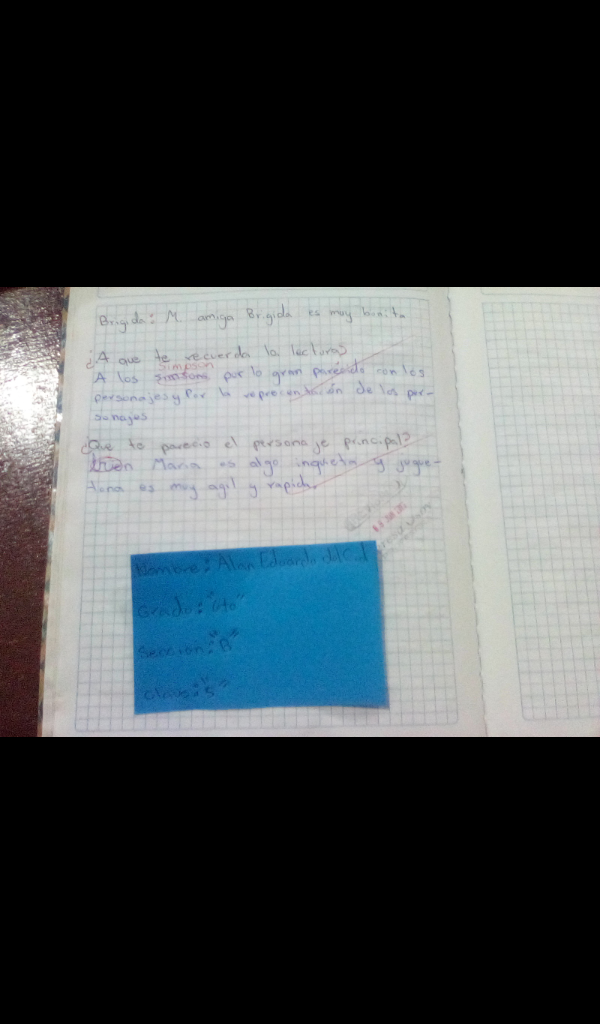 Brigida: M. amiga Brigida es muy bonita
¿A que te recuerda la lectura?
Simpson
A los por lo gran parecido con los
personajes y Por la representación de los per-
sonajes
¿Que te parecio el personaje principal?
bien Maria es algo inquieta y jugue-
tona es muy agil y rapida.
Nombre: Alan Eduardo del Cid
Grado: "6to"
Sección: "A"
Clave: "5"